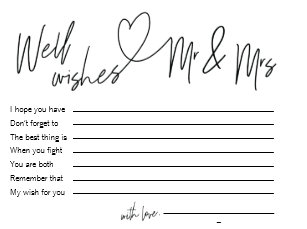 Well wishes Mr & Mrs
I hope you have
Don't forget to
The best thing is
When you fight
You are both
Remember that
My wish for you
with love.